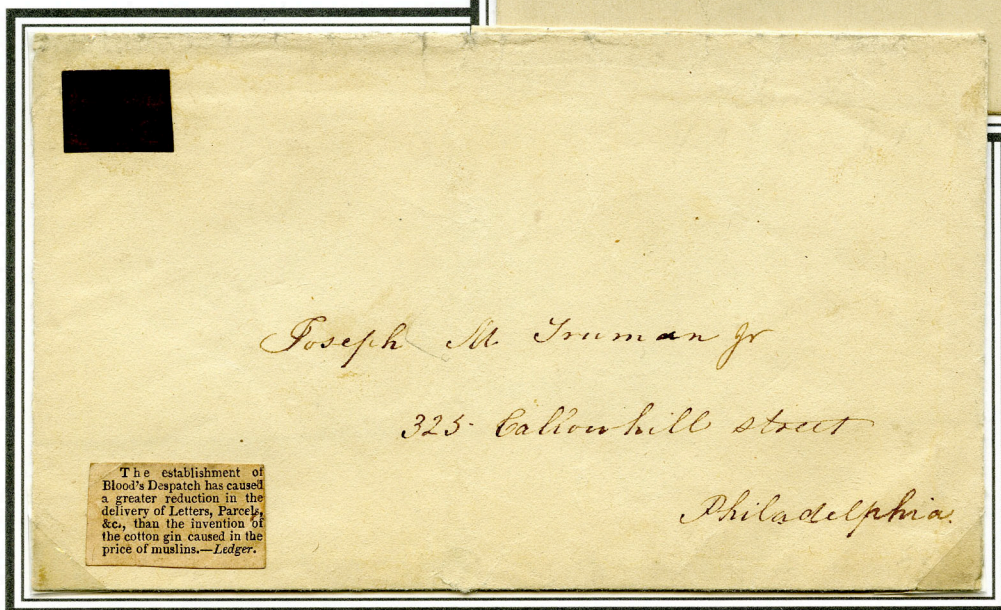 Joseph M Truman Jr
325 Callowhill street
Philadelphia.
The establishment of
Blood's Despatch has caused
a greater reduction in the
delivery of Letters, Parcels,
&c., than the invention of
the cotton gin caused in the
price of muslins.—Ledger.